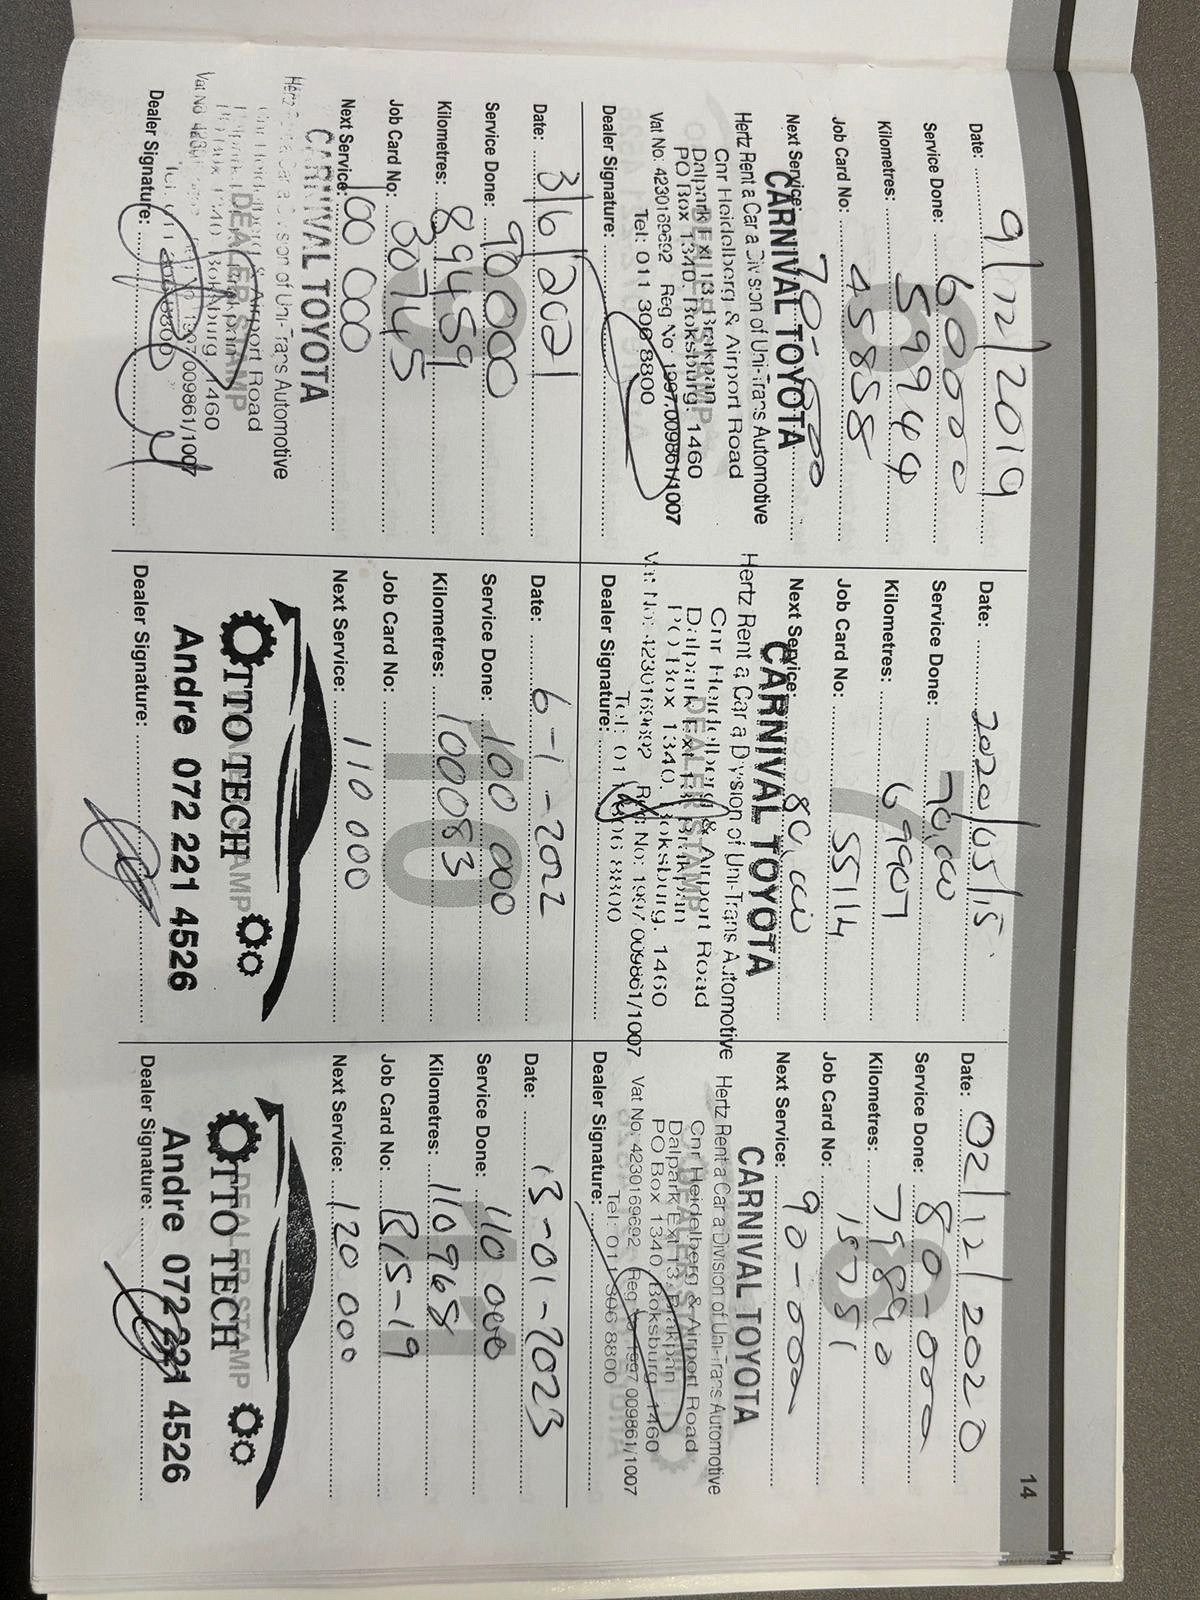 14
Date: 9/12/2019
Service Done: 60000
Kilometres: 59944
Job Card No: 45858
Next Service: 70-000
CARNIVAL TOYOTA
Hertz Rent a Car a Division of Uni-Trans Automotive
Cnr Heidelberg & Airport Road
Dalpark Ext 13 Brakpan
PO Box 1340, Boksburg, 1460
Vat No: 4230169692 Reg No: 1997 009861/1007
Tel: 011 306 8800
Dealer Signature:
7
Date: 2020/05/15
Service Done: 70,000
Kilometres: 69907
Job Card No: 5514
Next Service: 80,000
CARNIVAL TOYOTA
Hertz Rent a Car a Division of Uni-Trans Automotive
Cnr Heidelberg & Airport Road
Dalpark Ext 13 Brakpan
DEALER STAMP
PO Box 1340, Boksburg, 1460
Vat No: 4230169692 Reg No: 1997 009861/1007
Tel: 011 306 8800
Dealer Signature:
8
Date: 02/12/2020
Service Done: 80-000
Kilometres: 79890
Job Card No: 15751
Next Service: 90-000
CARNIVAL TOYOTA
Hertz Rent a Car a Division of Uni-Trans Automotive
Cnr Heidelberg & Airport Road
Dalpark Ext 13 Brakpan
PO Box 1340, Boksburg, 1460
Vat No: 4230169692 Reg No: 1997 009861/1007
Tel: 011 306 8800
Dealer Signature:
Date: 3/6/2021
Service Done: 90000
Kilometres: 89459
Job Card No: 30745
Next Service: 100 000
CARNIVAL TOYOTA
Hertz Rent a Car a Division of Uni-Trans Automotive
Cnr Heidelberg & Airport Road
DEALER STAMP
Dalpark Brakpan
PO Box 1340, Boksburg, 1460
Vat No 4230169692 Reg No 1997 009861/1007
Tel: 011 306 8800
Dealer Signature:
10
Date: 6-1-2022
Service Done: 100 000
Kilometres: 100083
Job Card No:
Next Service: 110 000
OTTO TECH
DEALER STAMP
Andre 072 221 4526
Dealer Signature:
11
Date: 13-01-2023
Service Done: 110 000
Kilometres: 110968
Job Card No: B15-19
Next Service: 120 000
OTTO TECH
DEALER STAMP
Andre 072 221 4526
Dealer Signature: